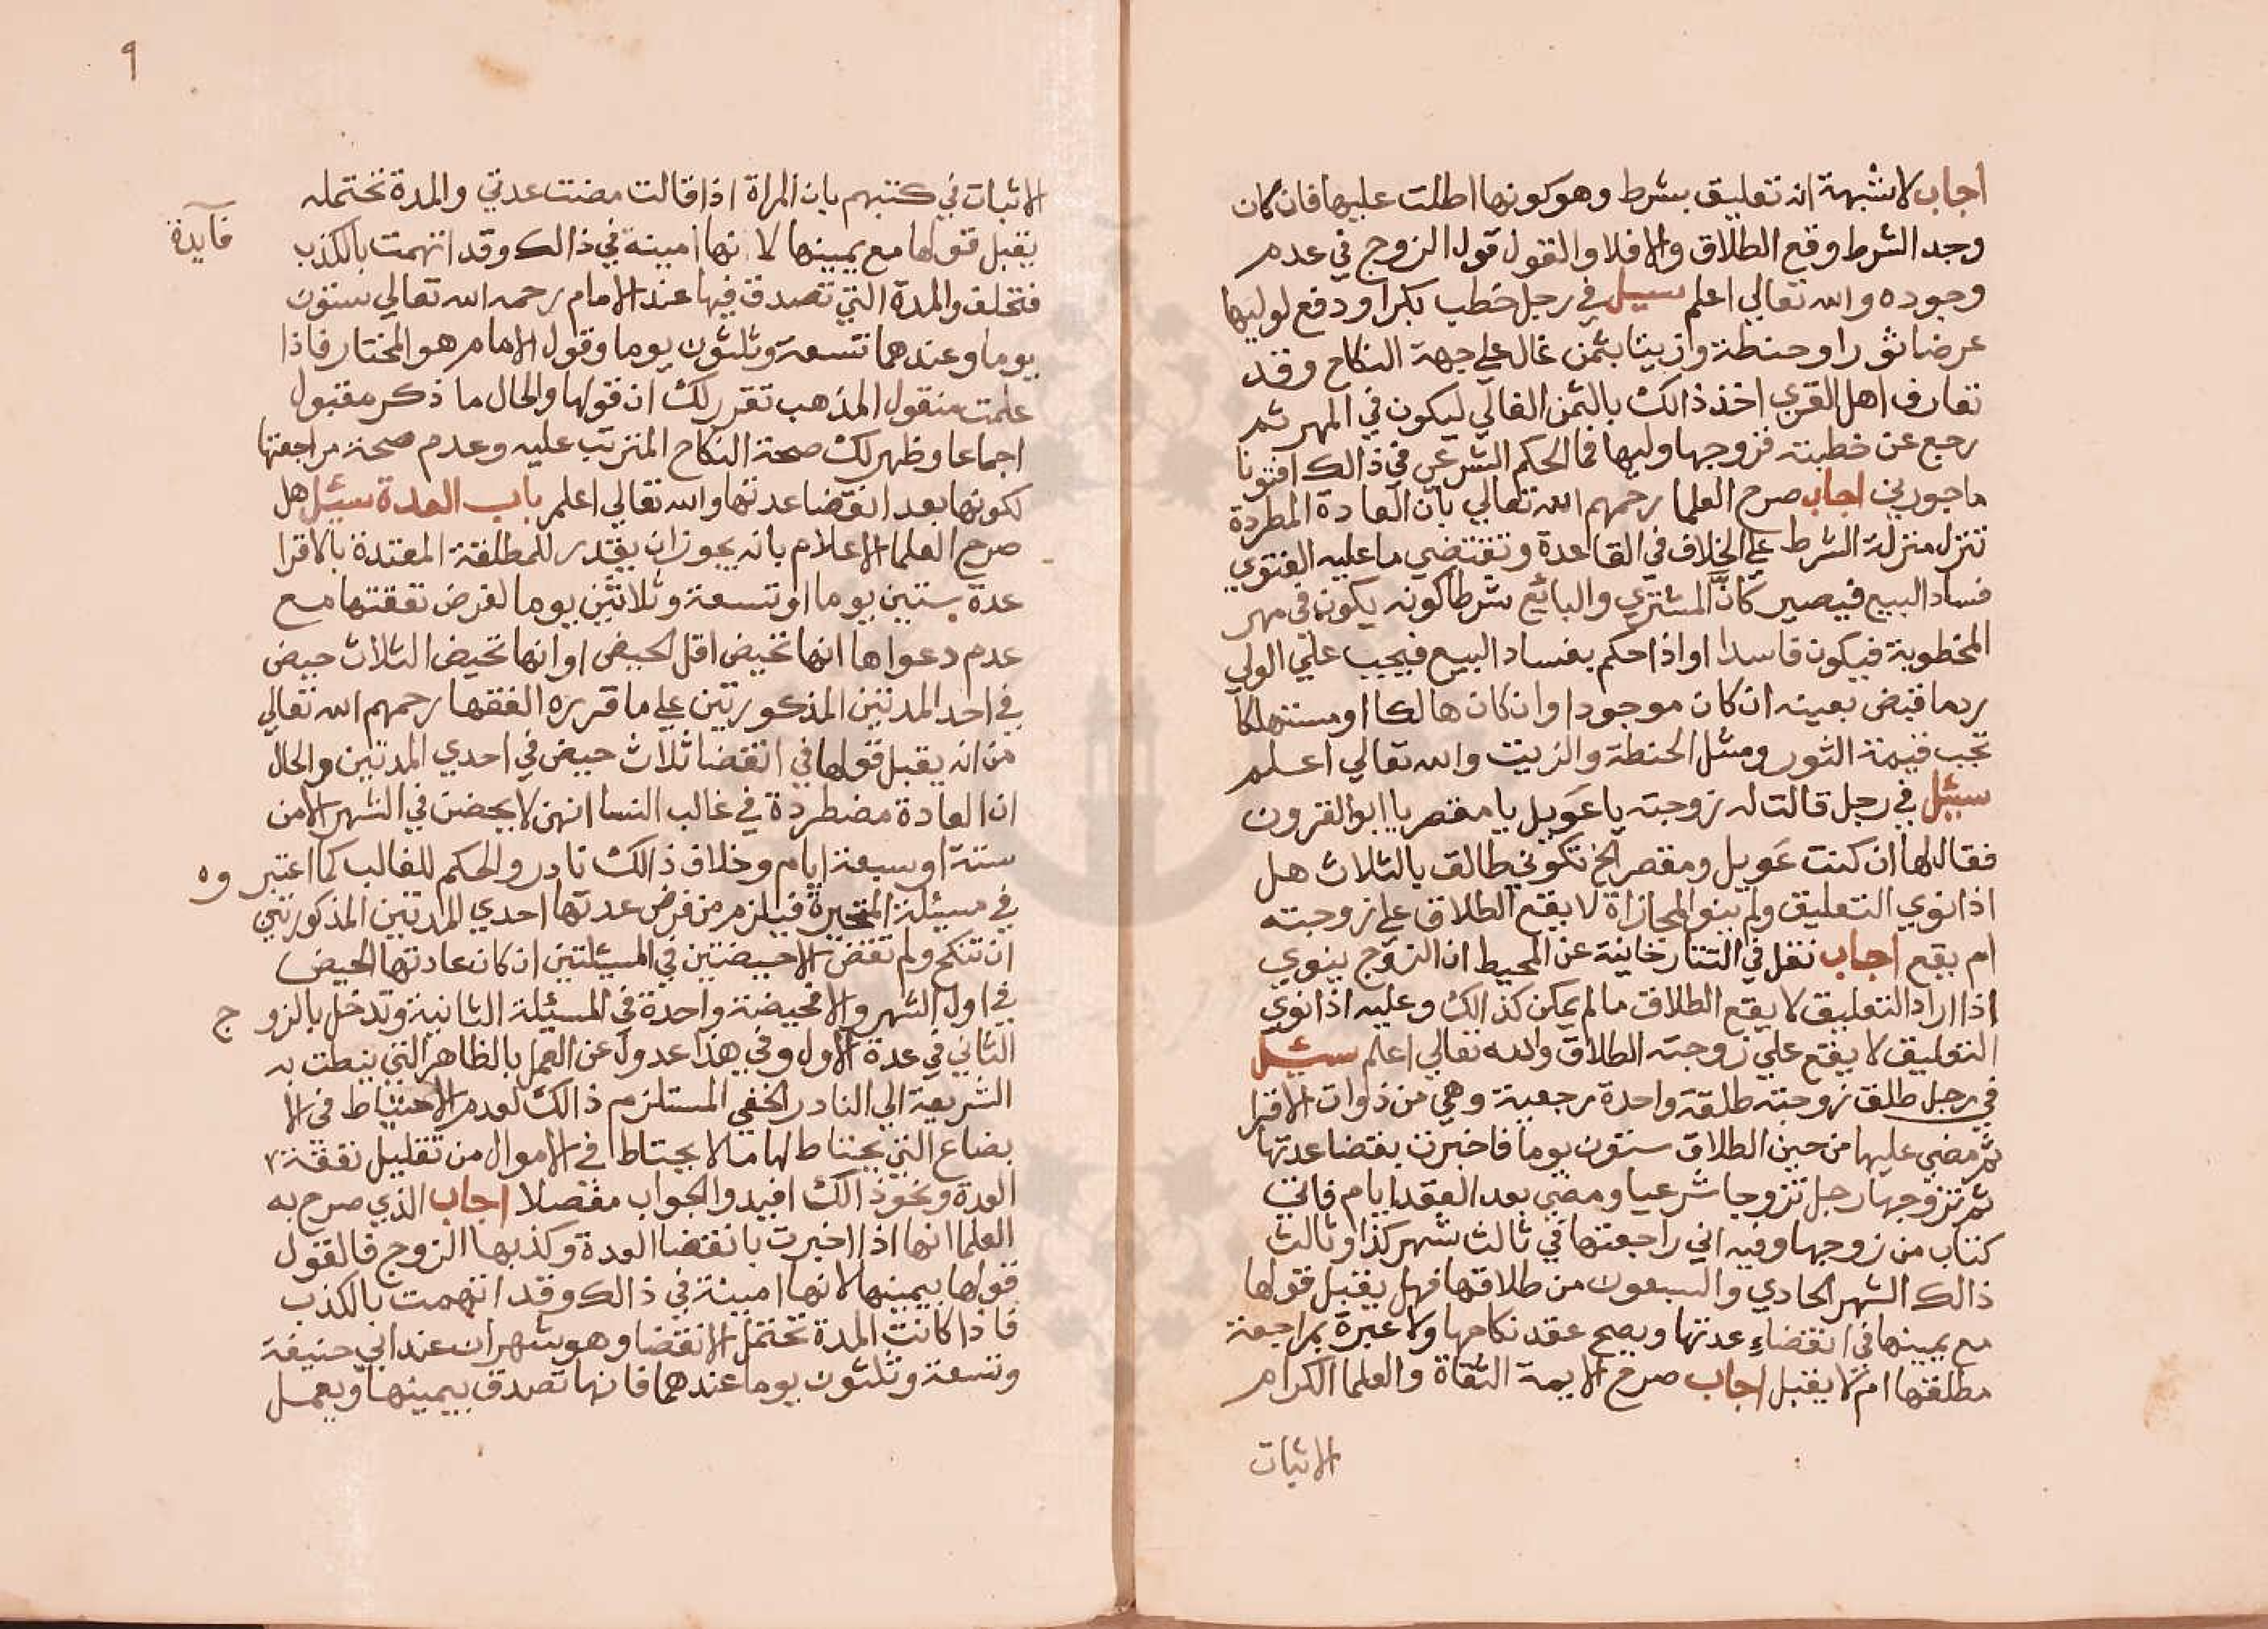 اجاب لا شبهة انه تعليق بشرط وهو كونها اطلت عليها فان كان
وجد الشرط وقع الطلاق والا فلا والقول قول الزوج في عدم
وجوده والله تعالي اعلم سيل في رجل خطب بكرا ودفع لوليها
عرضا ثورا وحنطة وازيتا بثمن غال علي جهة النكاح وقد
تعارف اهل القري اخذ ذالك بالثمن الغالي ليكون في المهر ثم
رجع عن خطبته فزوجها وليها فما الحكم الشرعي في ذالك افتونا
ماجورين اجاب صرح العلما رحمهم الله تعالي بان العادة المطردة
تنزل منزلة الشرط علي الخلاف في القاعدة وتقتضي ما عليه الفتوي
فساد البيع فيصير كانّ المشتري والبائع شرطا كونه يكون في مهر
المخطوبة فيكون فاسدا اواذا حكم بفساد البيع فيجب علي الولي
رد ما قبض بعينه ان كان موجودا وان كان هالكا او مستهلكا
تجب قيمة الثور ومثل الحنطة والزيت والله تعالي اعلم
سيئل في رجل قالت له زوجته يا عَويل يا مقصر يا ابو القرون
فقال لها ان كنت عَويل ومقصر الخ تكوني طالق بالثلاث هل
اذا نوي التعليق ولم ينو المجازاة لا يقع الطلاق علي زوجته
ام يقع اجاب نقل في التتارخانية عن المحيط ان الزوج ينوي
اذا اراد التعليق لا يقع الطلاق ما لم يكن كذالك وعليه اذا نوي
التعليق لا يقع علي زوجته الطلاق والله تعالي اعلم سيئل
في رجل طلق زوجته طلقة واحدة رجعية وهي من ذوات الاقرا
ثم مضي عليها من حين الطلاق ستون يوما فاخبرت بقضا عدتها
ثم تزوجها رجل تزوجا شرعيا ومضي بعد العقد ايام فاتي
كتاب من زوجها وفيه اني راجعتها في ثالث شهر كذا وثالث
ذالك الشهر الحادي والسبعون من طلاقها فهل يقبل قولها
مع يمينها في انقضاء عدتها ويصح عقد نكاحها ولا عبرة بمراجعة
مطلقها ام لا يقبل اجاب صرح الايمة الثقاة والعلما الكرام
الاثبات
٩
الاثبات في كتبهم بان المراة اذا قالت مضت عدتي والمدة تحتمله
يقبل قولها مع يمينها لا نها امينة في ذالك وقد اتهمت بالكذب
فايدة
فتحلف والمدة التي تصدق فيها عند الامام رحمه الله تعالي ستون
يوما وعندهما تسعة وثلثون يوما وقول الامام هو المختار فاذا
علمت منقول المذهب تقرر لك ان قولها والحال ما ذكر مقبول
اجماعا وظهر لك صحة النكاح المترتب عليه وعدم صحة مراجعتها
لكونها بعد انقضا عدتها والله تعالي اعلم باب العدة سيئل هل
صرح العلما الاعلام بانه يجوز ان يقدر للمطلقة المعتدة بالاقرا
عدة ستين يوما او تسعة وثلاثين يوما لفرض نفقتها مع
عدم دعواها انها تحيض اقل الحيض او انها تحيض الثلاث حيض
في احد المدتين المذكورتين علي ما قرره الفقها رحمهم الله تعالي
من انه يقبل قولها في انقضا ثلاث حيض في احدي المدتين والحال
ان العادة مضطردة في غالب النسا انهن لا يحضن في الشهر الا من
ستة او سبعة ايام وخلاف ذالك نادر والحكم للغالب كما اعتبر وه
في مسيئلة المتحيرة فيلزم من فرض عدتها احدي المدتين المذكورتين
ان تنكح ولم تقض الا حيضتين في المسيئلتين ان كان عادتها الحيض
في اول الشهر والا فحيضة واحدة في المسيئلة الثانية وتدخل بالزو ج
الثاني في عدة الاول وفي هذا عدول عن العمل بالظاهر التي نيطت به
الشريعة الي النادر الخفي المستلزم ذالك لعدم الاحتياط في الا
بضاع التي يحتاط لها ما لا يحتاط في الاموال من تقليل نفقة
العدة ونحو ذالك افيدوا الجواب مفصلا اجاب الذي صرح به
العلما انها اذا اخبرت بانقضا العدة وكذبها الزوج فالقول
قولها بيمينها لانها امينة في ذالك وقد اتهمت بالكذب
فاذا كانت المدة تحتمل الانقضا وهو شهران عند ابي حنيفة
وتسعة وثلثون يوما عندهما فانها تصدق بيمينها ويعمل